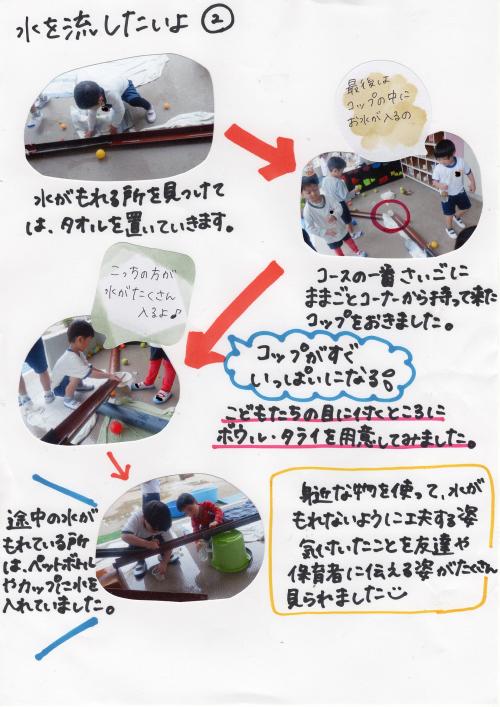 水を流したいよ②
水がもれる所を見つけて
は、タオルを置いていきます。
最後は
コップの中に
お水が入るの
コースの一番さいごに
ままごとコーナーから持って来た
コップをおきました。
こっちの方が
水がたくさん
入るよ♪
コップがすぐ
いっぱいになる。
こどもたちの目に付くところに
ボウル・タライを用意してみました。
途中の水が
もれている所
は、ペットボトル
やカップに水を
入れていました。
身近な物を使って、水が
もれないように工夫する姿
気付いたことを友達や
保育者に伝える姿がたくさん
見られました